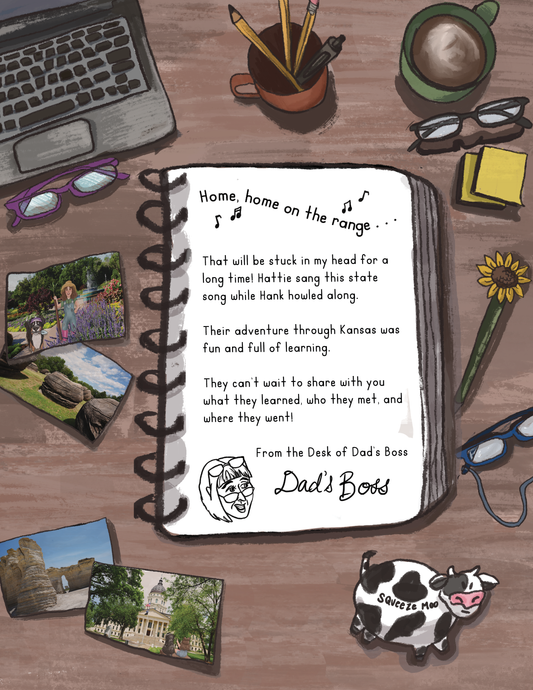 Home, home on the range . . .
That will be stuck in my head for a
long time! Hattie sang this state
song while Hank howled along.
Their adventure through Kansas was
fun and full of learning.
They can't wait to share with you
what they learned, who they met, and
where they went!
From the Desk of Dad's Boss
Dad's Boss
SQUEEZE MOO